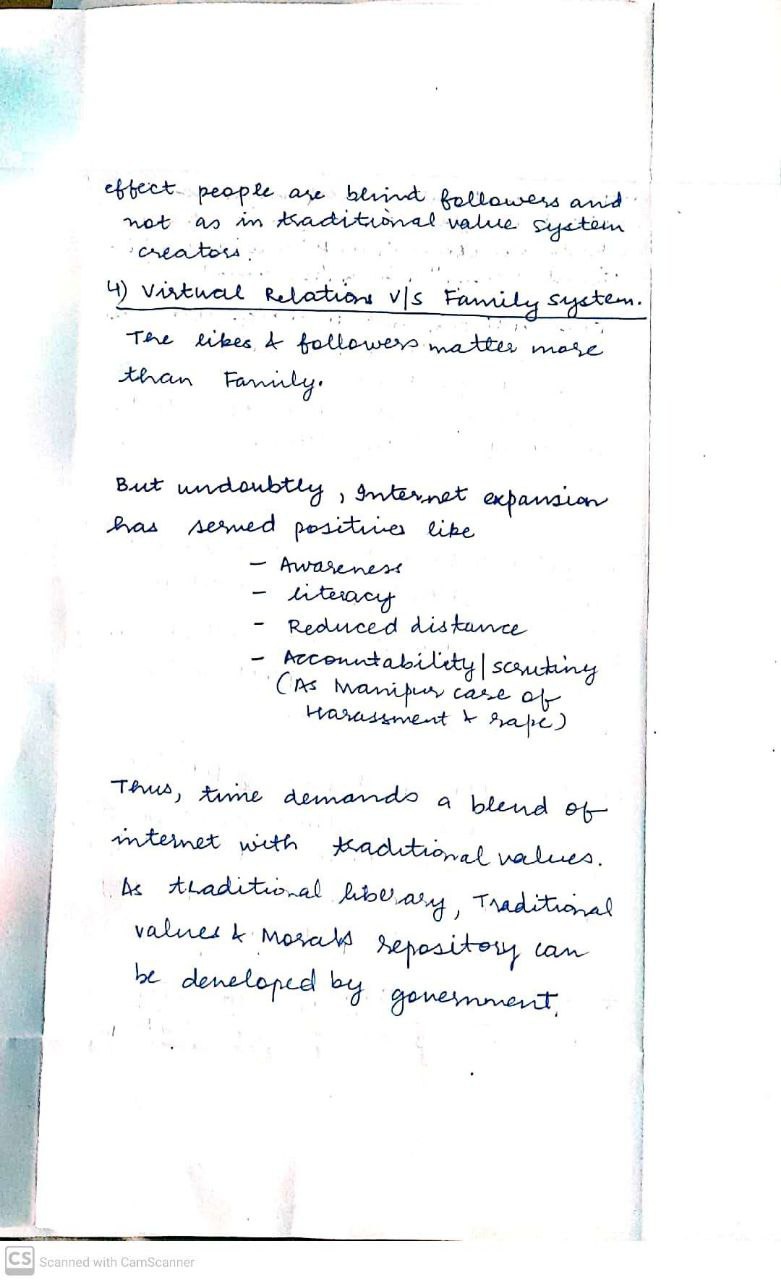 effect people are blind followers and
not as in traditional value system
creators.
4) Virtual Relations v/s Family system.
The likes & followers matter more
than Family.
But undoubtly, Internet expansion
has served positives like
- Awareness
- literacy
- Reduced distance
- Accountability | scrutiny
(As Manipur case of
Harassment & rape)
Thus, time demands a blend of
internet with traditional values.
As traditional liberary, Traditional
values & Morals repository can
be developed by government.
CS Scanned with CamScanner